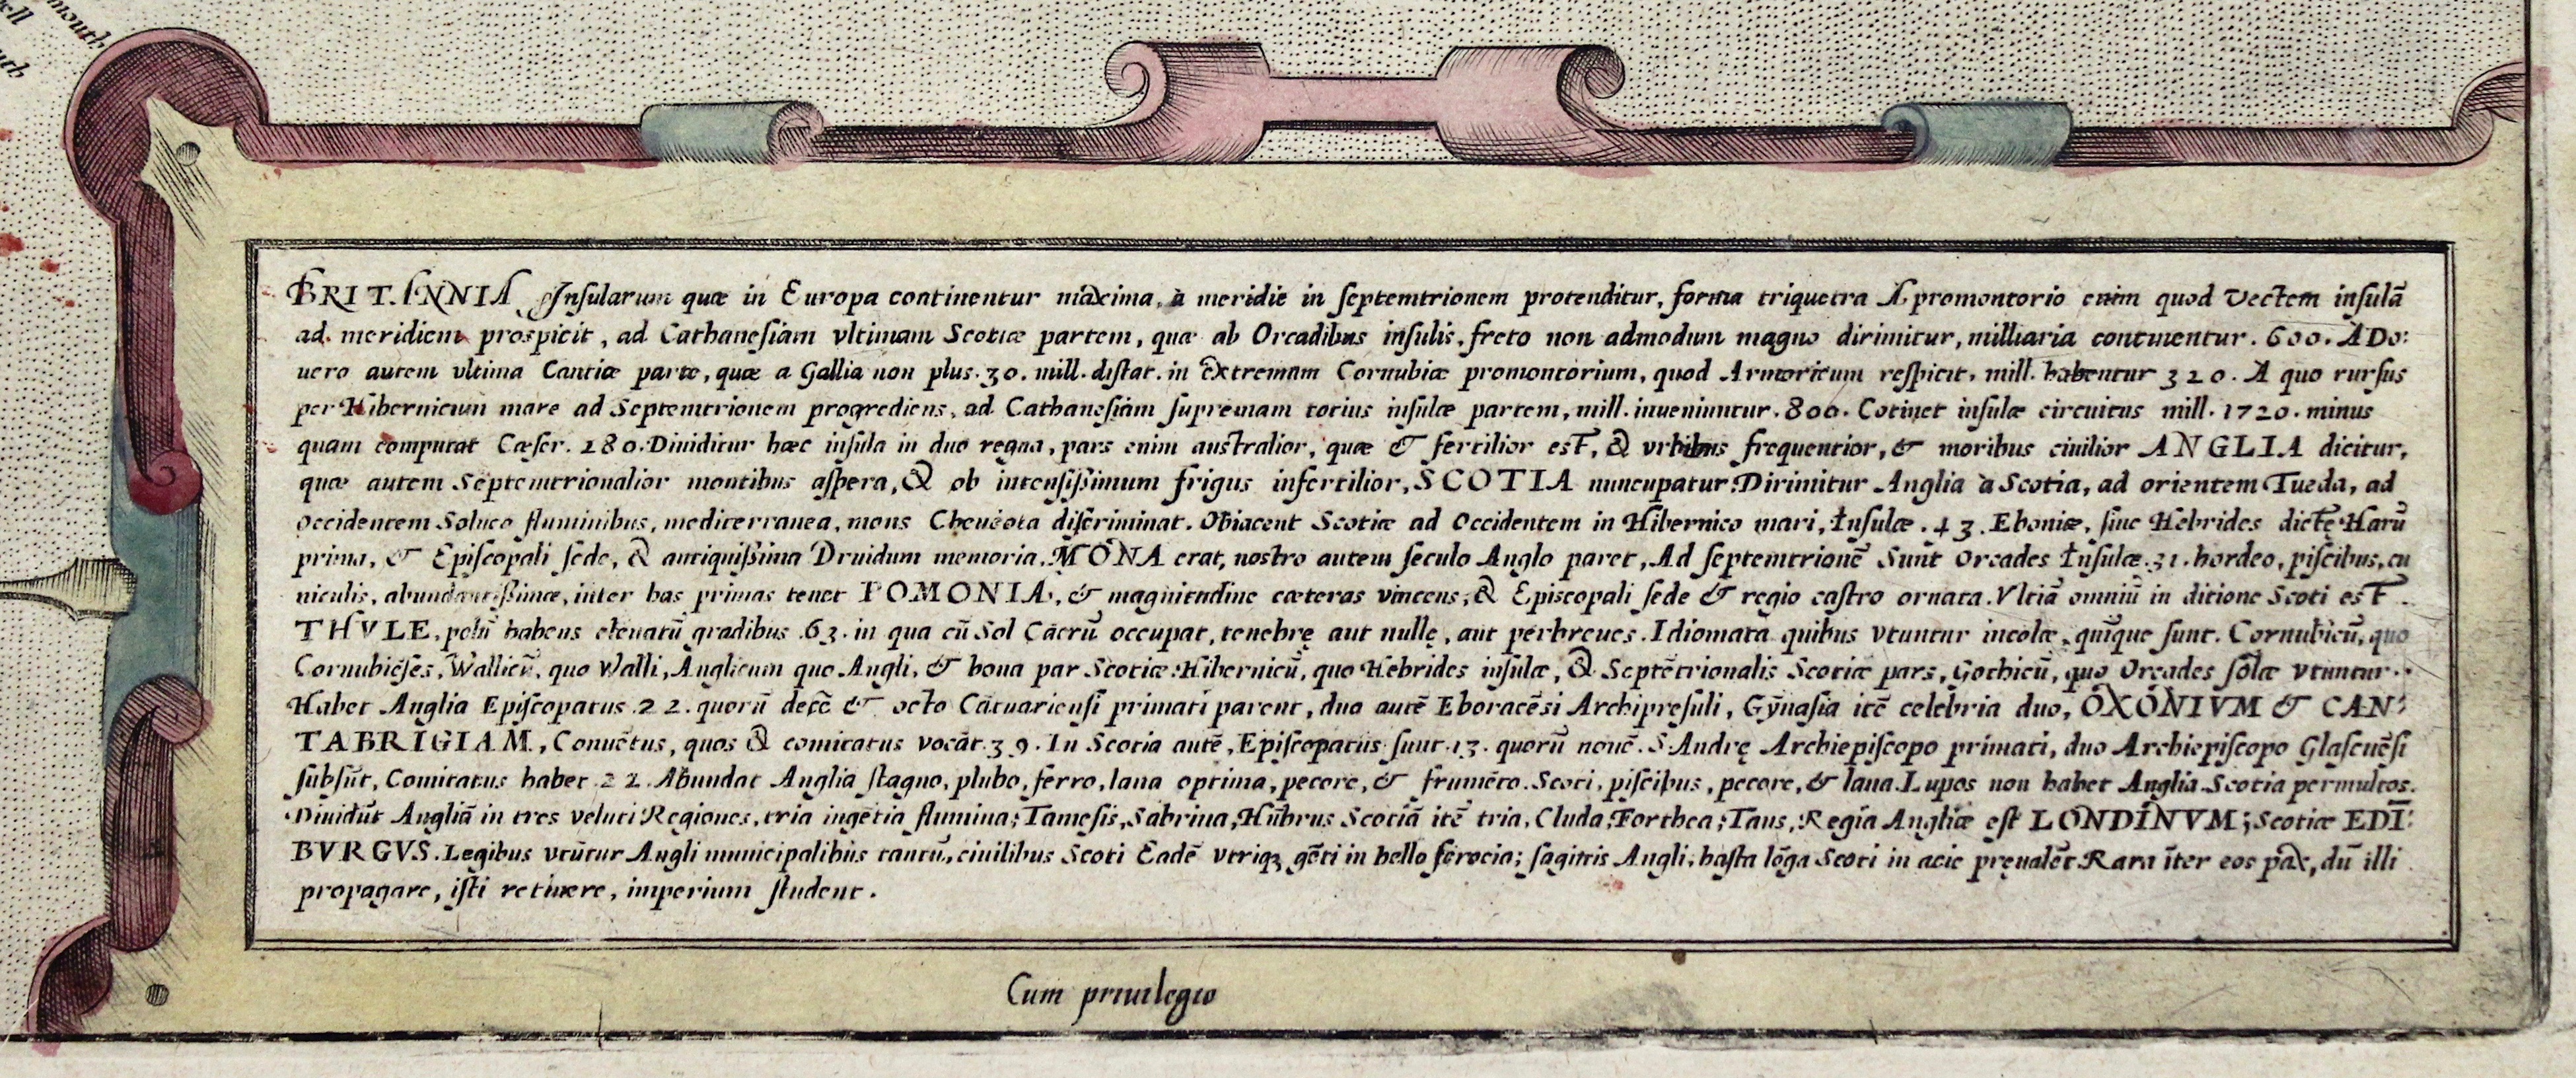 mouth
BRITANNIA Insularum quæ in Europa continentur maxima, à meridie in septemtrionem protenditur, forma triquetra A promontorio enim quod Vectem insulā
ad meridiem prospicit, ad Cathanesiam vltimam Scotiæ partem, quæ ab Orcadibus insulis freto non admodum magno dirimitur, milliaria continentur . 600. A Do:
uero autem vltima Cantiæ parte, quæ a Gallia non plus . 30. mill. distat. in extremam Cornubiæ promontorium, quod Armoricum respicit, mill. habentur 320. A quo rursus
per Hibernicum mare ad Septemtrionem progrediens, ad Cathanesiam supremam totius insulæ partem, mill. inueniuntur . 800. Cotinet insulæ circuitus mill. 1720. minus
quam computat Cæser. 280. Diuiditur hæc insula in duo regna, pars enim australior, quæ & fertilior est, & vrbibus frequentior, & moribus ciuilior ANGLIA dicitur,
quæ autem Septemtrionalior montibus aspera, & ob intensissimum frigus infertilior, SCOTIA nuncupatur: Dirimitur Anglia à Scotia, ad orientem Tueda, ad
occidentem Solueo fluminibus, mediterranea, mons Cheueota discriminat. Obiacent Scotiæ ad Occidentem in Hibernico mari, Insulæ . 43. Eboniæ, siue Hebrides dictę Harū
prima, & Episcopali sede, & antiquissima Druidum memoria, MONA erat, nostro autem seculo Anglo paret, Ad septemtrionē Sunt Orcades Insulæ . 31. hordeo, piscibus, cu
niculis, abundantissimæ, inter has primas tenet POMONIA, & magnitudine cæteras vincens, & Episcopali sede & regio castro ornata. Vltiā omniū in ditione Scoti est
THVLE, polū habens eleuatū gradibus . 63. in qua cū Sol Cācrū occupat, tenebrę aut nullę, aut perbreues. Idiomata quibus vtuntur incolæ, quīque sunt. Cornubicū, quo
Cornubiēses, Wallicū, quo Walli, Anglicum quo Angli, & bona par Scotiæ: Hibernicū, quo Hebrides insulæ, & Septētrionalis Scotiæ pars, Gothicū, quo Orcades solæ vtuntur.
Habet Anglia Episcopatus . 22. quorū decē & octo Cātuariensi primati parent, duo autē Eboracēsi Archipresuli, Gȳnasia itē celebria duo, OXONIVM & CAN:
TABRIGIAM, Conuētus, quos & comitatus vocāt. 39. In Scotia autē, Episcopatus sunt . 13. quorū nouē. S. Andrę Archiepiscopo primati, duo Archiepiscopo Glascuēsi
subsūt, Comitatus habet . 22. Abundat Anglia stagno, plūbo, ferro, lana optima, pecore, & frumēto. Scoti, piscibus, pecore, & lana. Lupos non habet Anglia. Scotia permultos.
Diuidūt Angliā in tres veluti Regiones, tria ingētia flumina; Tamesis, Sabrina, Hūbrus Scotiā itē tria, Cluda, Forthea; Taus, Regia Angliæ est LONDINVM; Scotiæ EDĪ:
BVRGVS. Legibus vtūtur Angli municipalibus tantū, ciuilibus Scoti Eadē vtriqꝫ gēti in bello ferocia; sagittis Angli, hasta lōga Scoti in acie pręualēt Rara īter eos pax, dū illi
propagare, isti retinere, imperium student.
Cum priuilegio